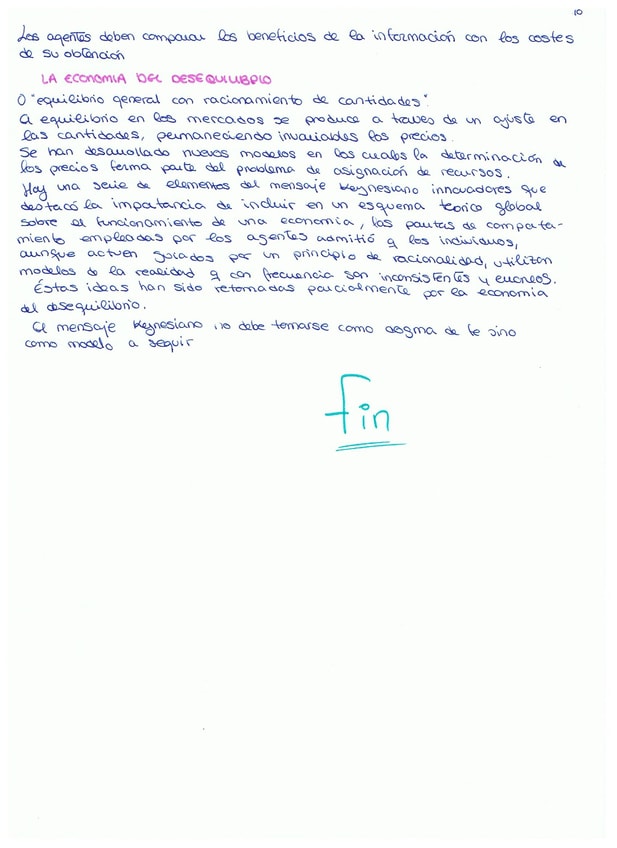 10
Los agentes deben comparar los beneficios de la información con los costes
de su obtención
LA ECONOMIA DEL DESEQUILIBRIO
O "equilibrio general con racionamiento de cantidades".
El equilibrio en los mercados se produce a traves de un ajuste en
las cantidades, permaneciendo invariables los precios.
Se han desarrollado nuevos modelos en los cuales la determinación de
los precios forma parte del problema de asignación de recursos.
Hay una serie de elementos del mensaje Keynesiano innovadores que
destacó la importancia de incluir en un esquema teorico global
sobre el funcionamiento de una economía, las pautas de comporta-
miento empleadas por los agentes admitió q los individuos,
aunque actuen guiados por un principio de racionalidad, utilizan
modelos de la realidad q con frecuencia son inconsistentes y erroneos.
Éstas ideas han sido retomadas parcialmente por la economía
del desequilibrio.
El mensaje Keynesiano no debe tomarse como dogma de fe sino
como modelo a seguir
Fin